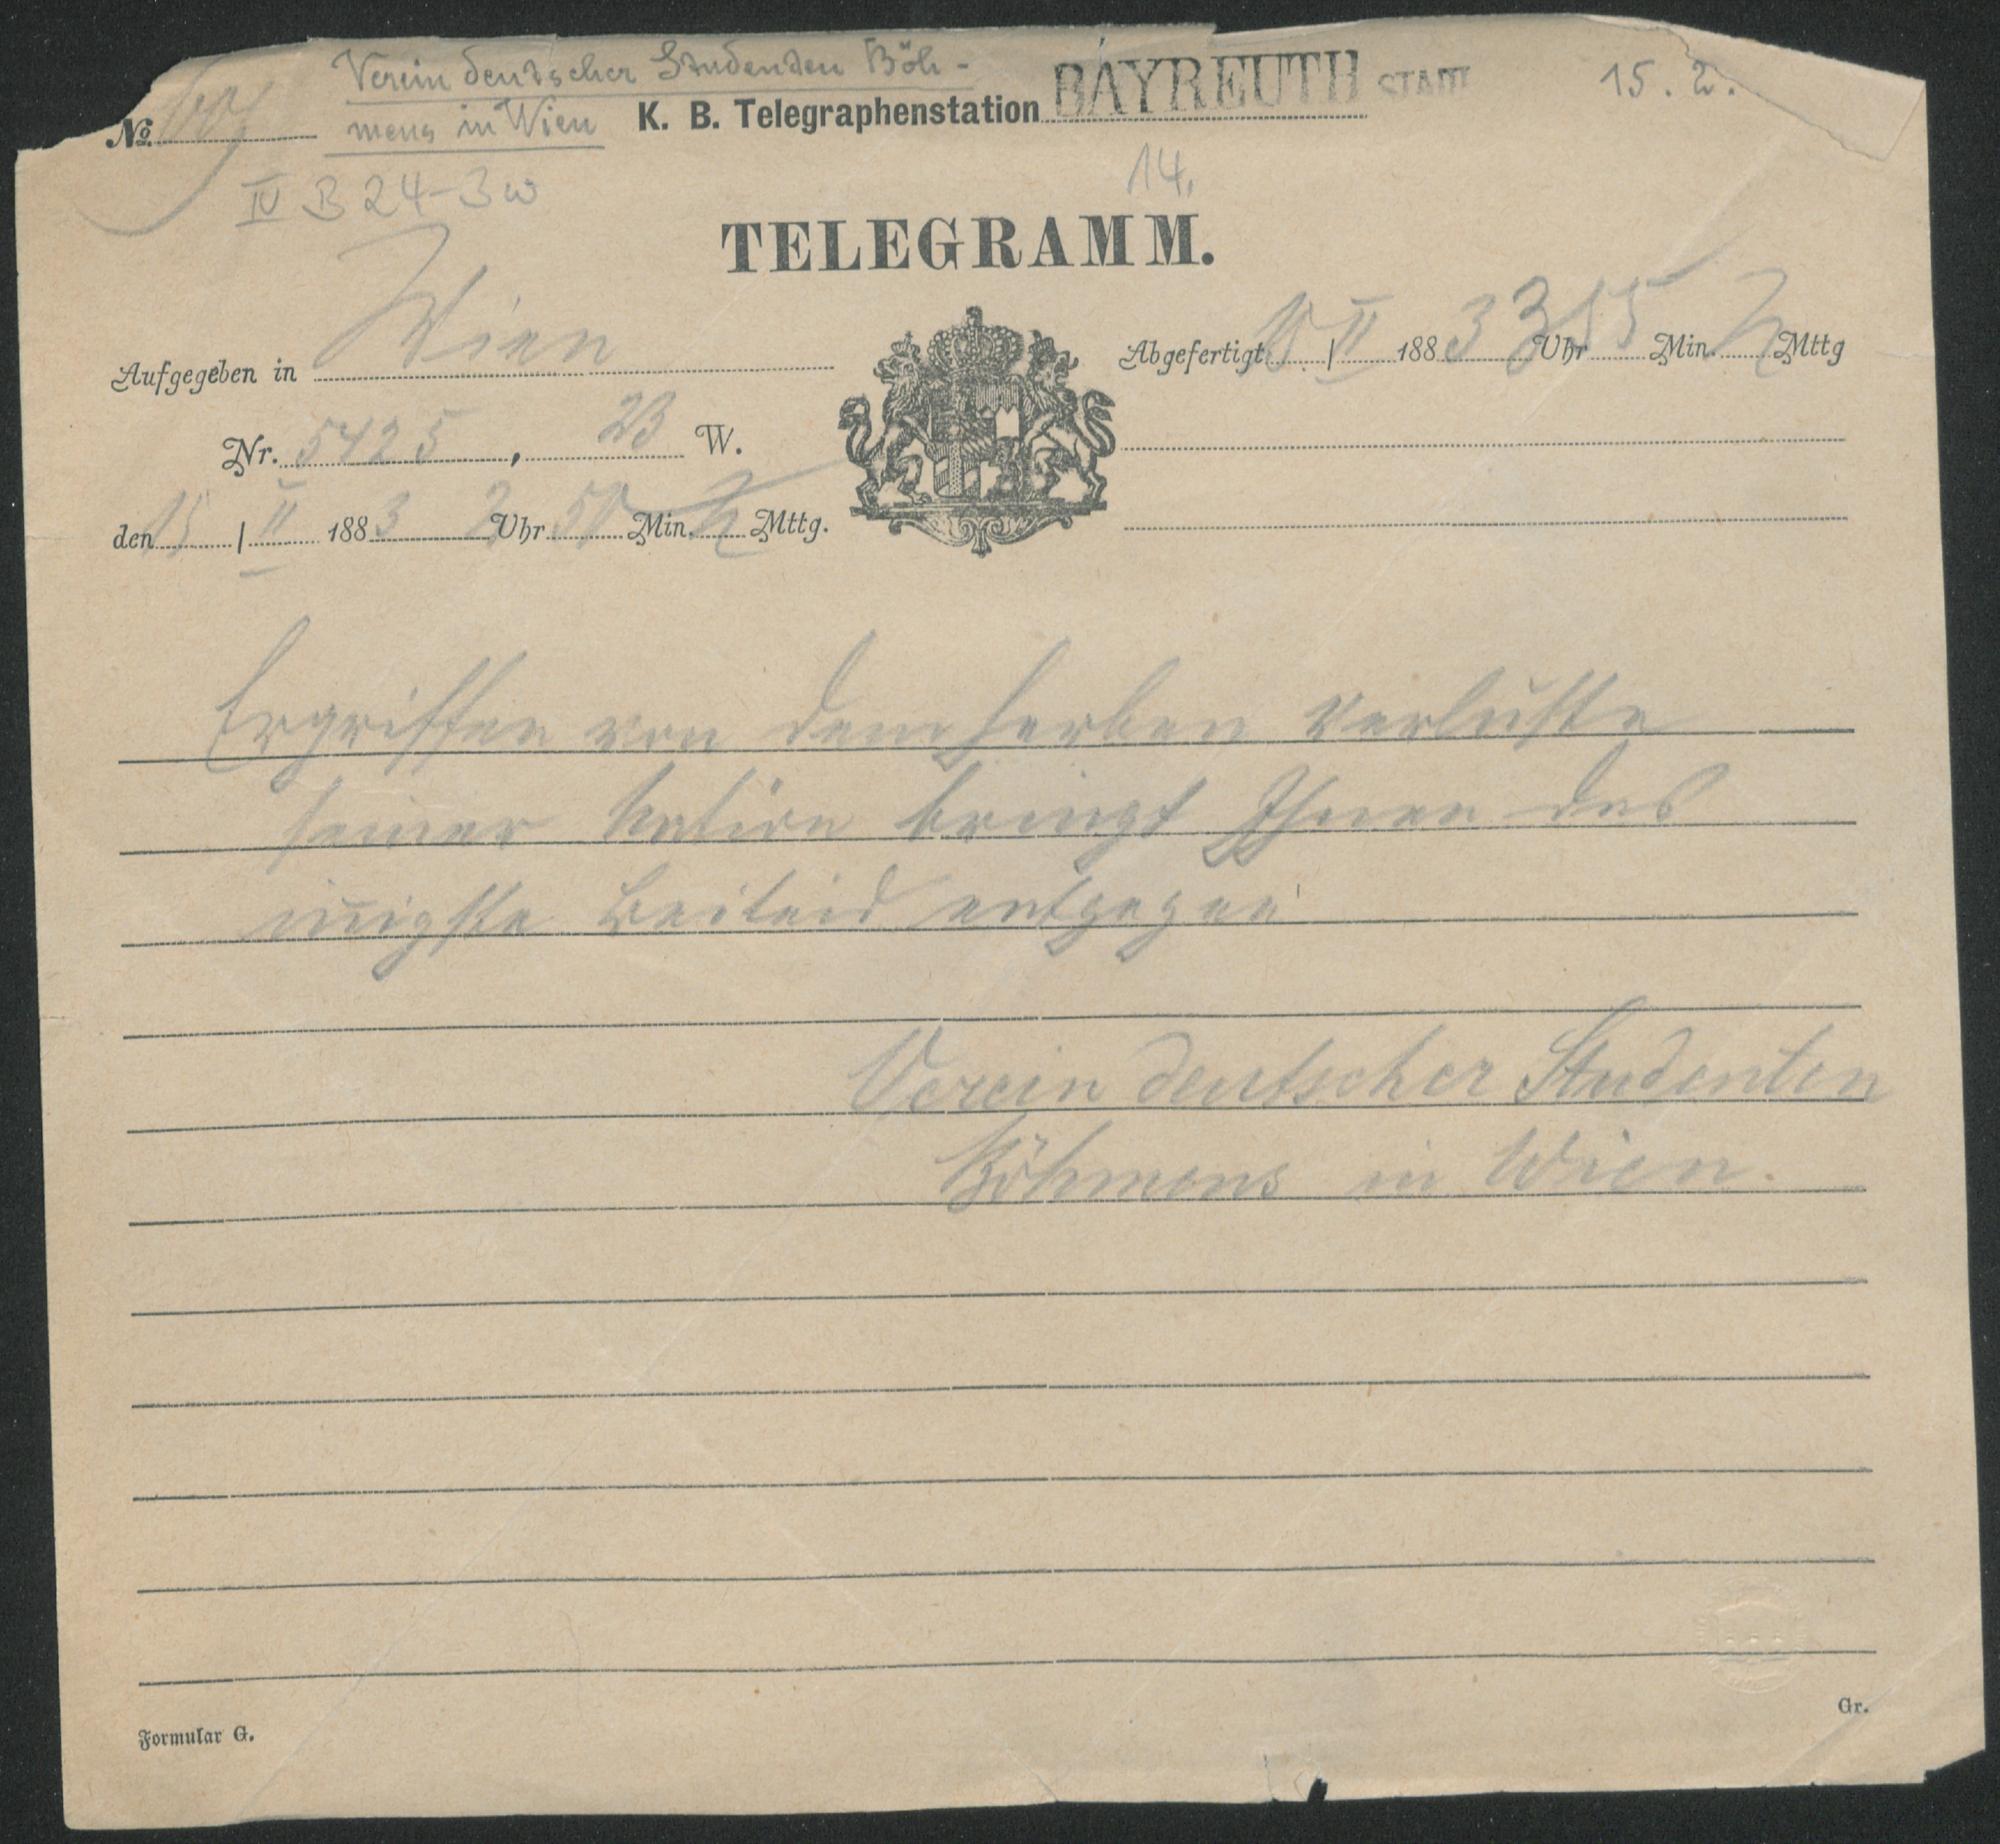 Verein deutscher Studenten Böh-
mens in Wien
15. 2.
No.
K. B. Telegraphenstation BAYREUTH STADT
IV B 24-3 w
14.
TELEGRAMM.
Aufgegeben in Wien
Abgefertigt II 1883 3 Uhr 15 Min. Mttg
Nr. 5425, 23 W.
den 15 / II 1883 2 Uhr 50 Min. Mttg.
Ergriffen von dem herben Verluste
seiner Nation bringt Ihnen das
in̄igste Beileid entgegen
Verein deutscher Studenten
Böhmens in Wien.
Formular G.
Gr.